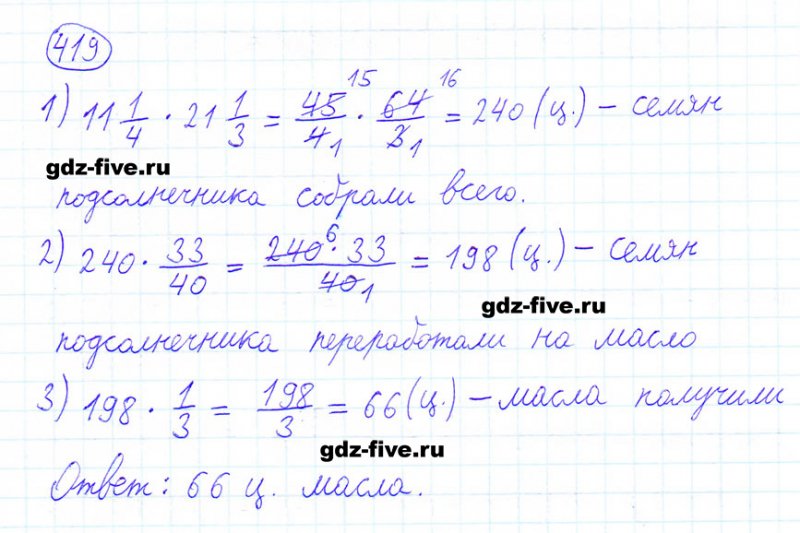 419
1) 11 1/4 · 21 1/3 = 45/4 · 64/3 = 240 (ц.) – семян
15 16 1 1
gdz-five.ru
подсолнечника собрали всего.
2) 240 · 33/40 = 240 · 33/40 = 198 (ц.) – семян
6 1
gdz-five.ru
подсолнечника переработали на масло
3) 198 · 1/3 = 198/3 = 66 (ц.) – масла получили
gdz-five.ru
Ответ: 66 ц. масла.